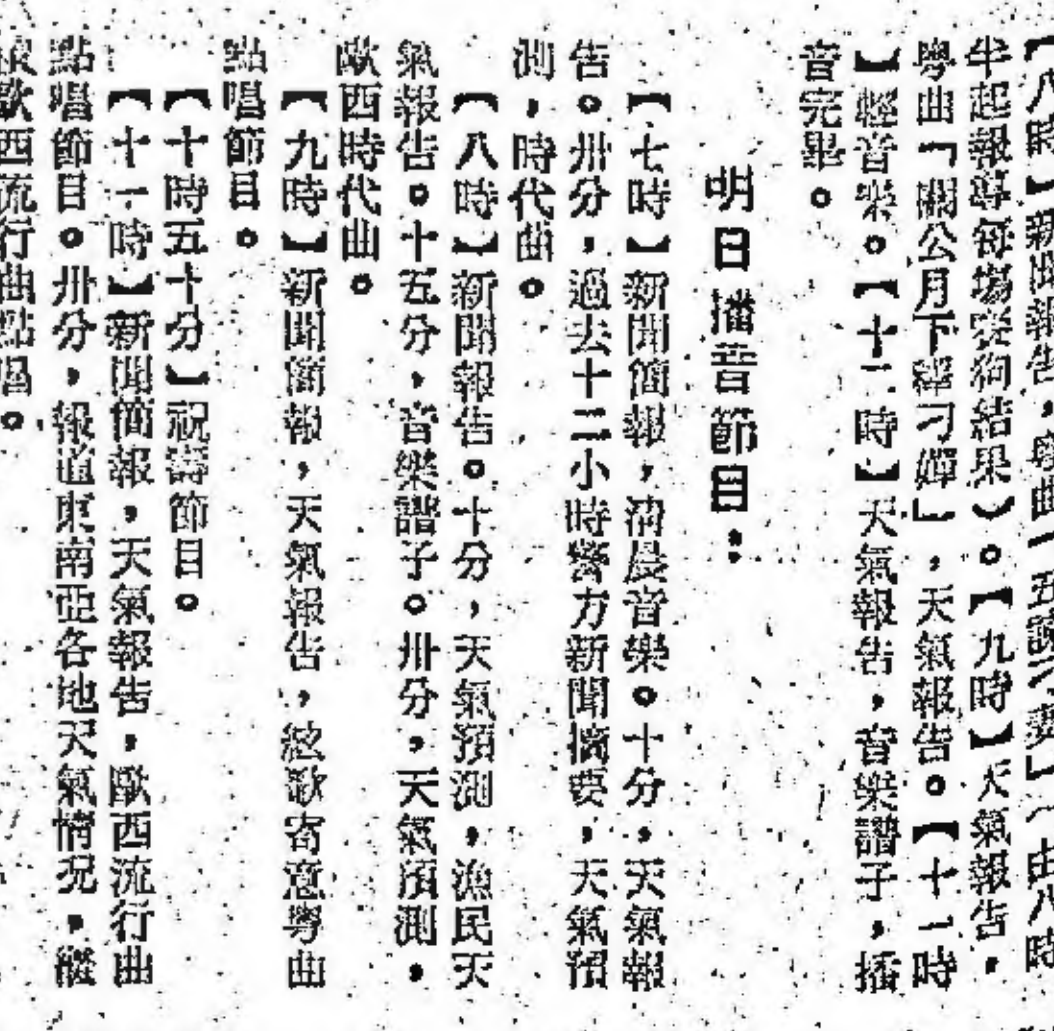 【八時】新聞報告，粵曲「五諫刁妻」（由八時
半起報導每塲賽狗結果）。【九時】天氣報告，
粵曲「關公月下釋刁嬋」，天氣報告。【十一時
】輕音樂。【十二時】天氣報告，音樂譜子，播
音完畢。
明日播音節目：
【七時】新聞簡報，清晨音樂。十分，天氣報
告。卅分，過去十二小時警方新聞摘要，天氣預
測，時代曲。
【八時】新聞報告。十分，天氣預測，漁民天
氣報告。十五分，音樂譜子。卅分，天氣預測，
歐西時代曲。
【九時】新聞簡報，天氣報告，絃歌寄意粵曲
點唱節目。
【十時五十分】祝壽節目。
【十一時】新聞簡報，天氣報告，歐西流行曲
點唱節目。卅分，報道東南亞各地天氣情況，繼
歐西流行曲點唱。